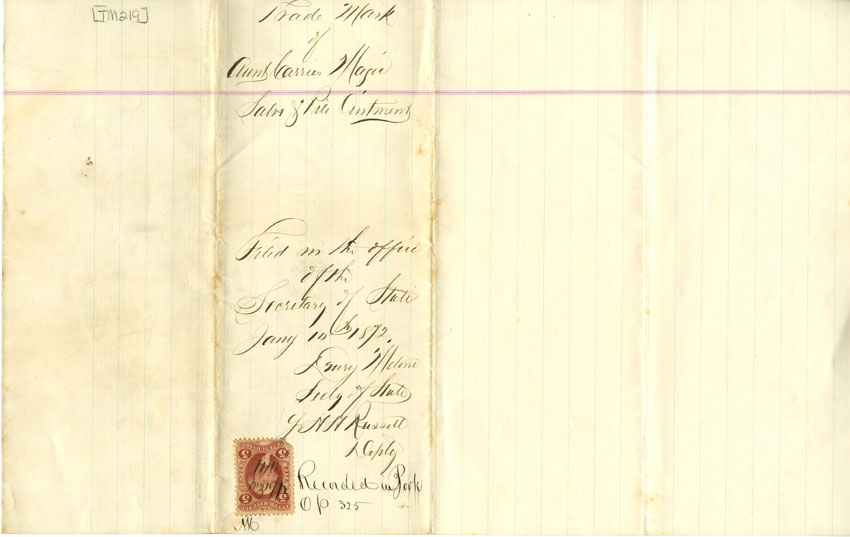 [TM219]
Trade Mark
of
Aunt Carries Magic
Salve & Pile Ointment
Filed in the office
of the
Secretary of State
Jany 10th 1872.
Drury Melone
Secty of State
Russell
Depty
Recorded in Book
O P 325